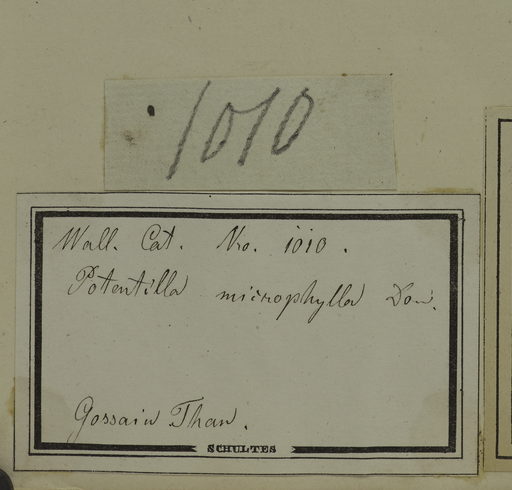 1010
Wall. Cat. No. 1010.
Potentilla microphylla Don.
Gossain Than.
SCHULTES